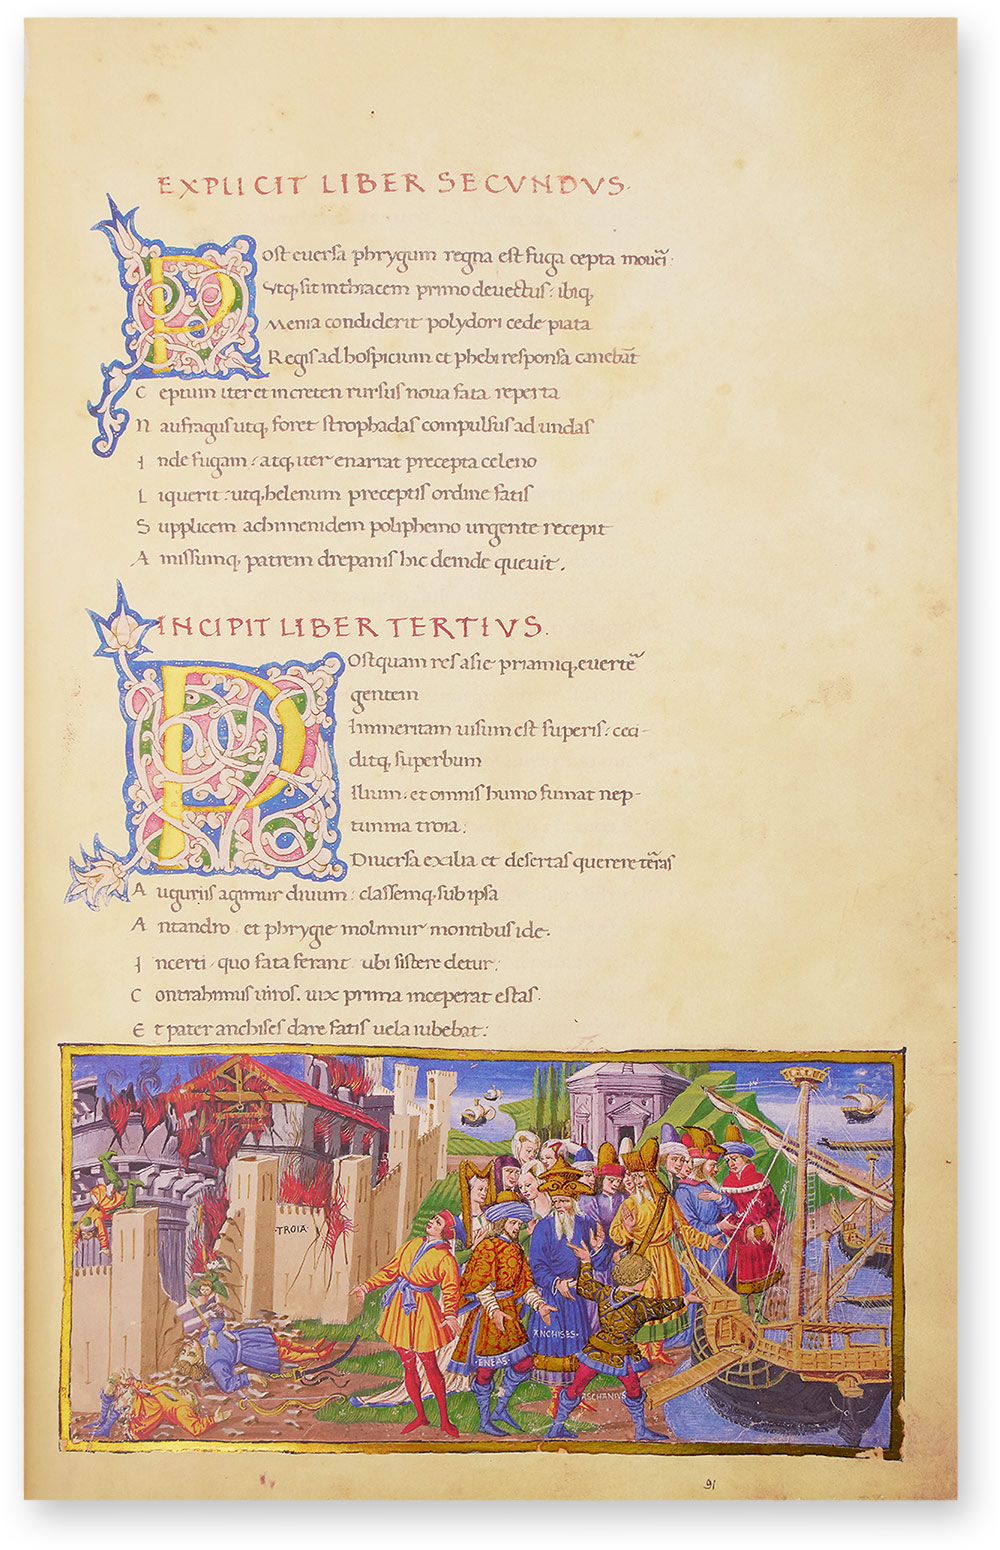 EXPLICIT LIBER SECVNDVS.
Post euersa phrygum regna est fuga cepta moueri:
Vtq, sit in thracem primo deuectus: ibiq,
Menia condiderit polydori cede piata
Regis ad hospicium et phebi responsa canebāt
Ceptum iter et in creten rursus noua fata reperta
Naufragus utq, foret strophadas compulsus ad undas
Inde fugam: atq, iter enarrat precepta celeno
Liquerit: utq, helenum preceptis ordine fatis
Supplicem achimenidem poliphemo urgente recepit
Amissumq, patrem drepanis hic deinde queuit.
INCIPIT LIBER TERTIVS.
Postquam res asie priamiq, euertē
gentem
Immeritam uisum est superis: ceci-
ditq, superbum
Ilium: et omnis humo fumat nep-
tunnia troia:
Diuersa exilia et desertas querere terras
Auguriis agimur diuum: classemq, sub ipsa
Antandro et phrygie molimur montibus ide.
Incerti quo fata ferant ubi sistere detur:
Contrahimus uiros. uix prima inceperat estas.
Et pater anchises dare fatis uela iubebat:
·TROIA·
ANCHISES·
·ENEAS·
ASCHANIVS
91